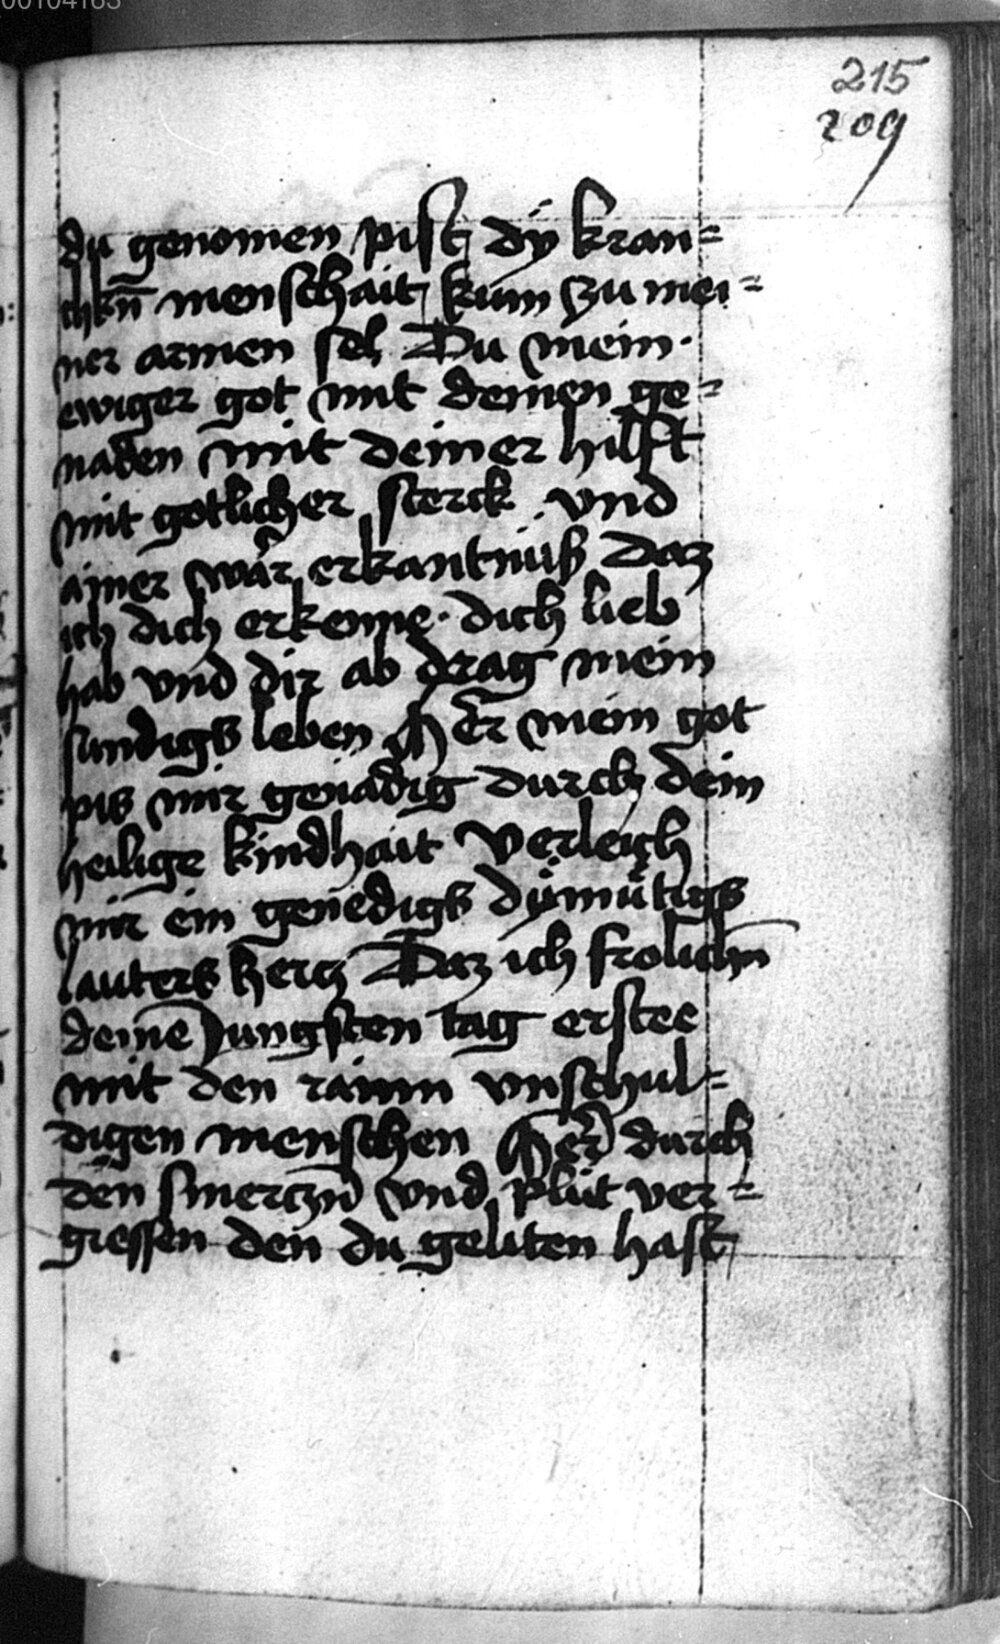 00104163
215
209
du genomen pist dÿ kran=
chkn̄ menschait kum zu mei=
ner armen sel Du mein·
ewiger got mit deinen ge=
naden mit deiner hilfft
mit gotlicher sterck vnd
ainer war erkantnuß daz
ich dich erkenne· dich lieb
hab vnd dir ab drag mein
sundigs leben Herr mein got
pis mir genadig durch dein
heilige kindhait Verleich
mir ein genedigs dÿmutigs
lauters hercz Daz ich frolichn̄
deinē Jungsten tag erstee
mit den rainn vnschul=
digen menschen Herr durch
den smerczn̄ vnd plut ver=
giessen den du geliten hast